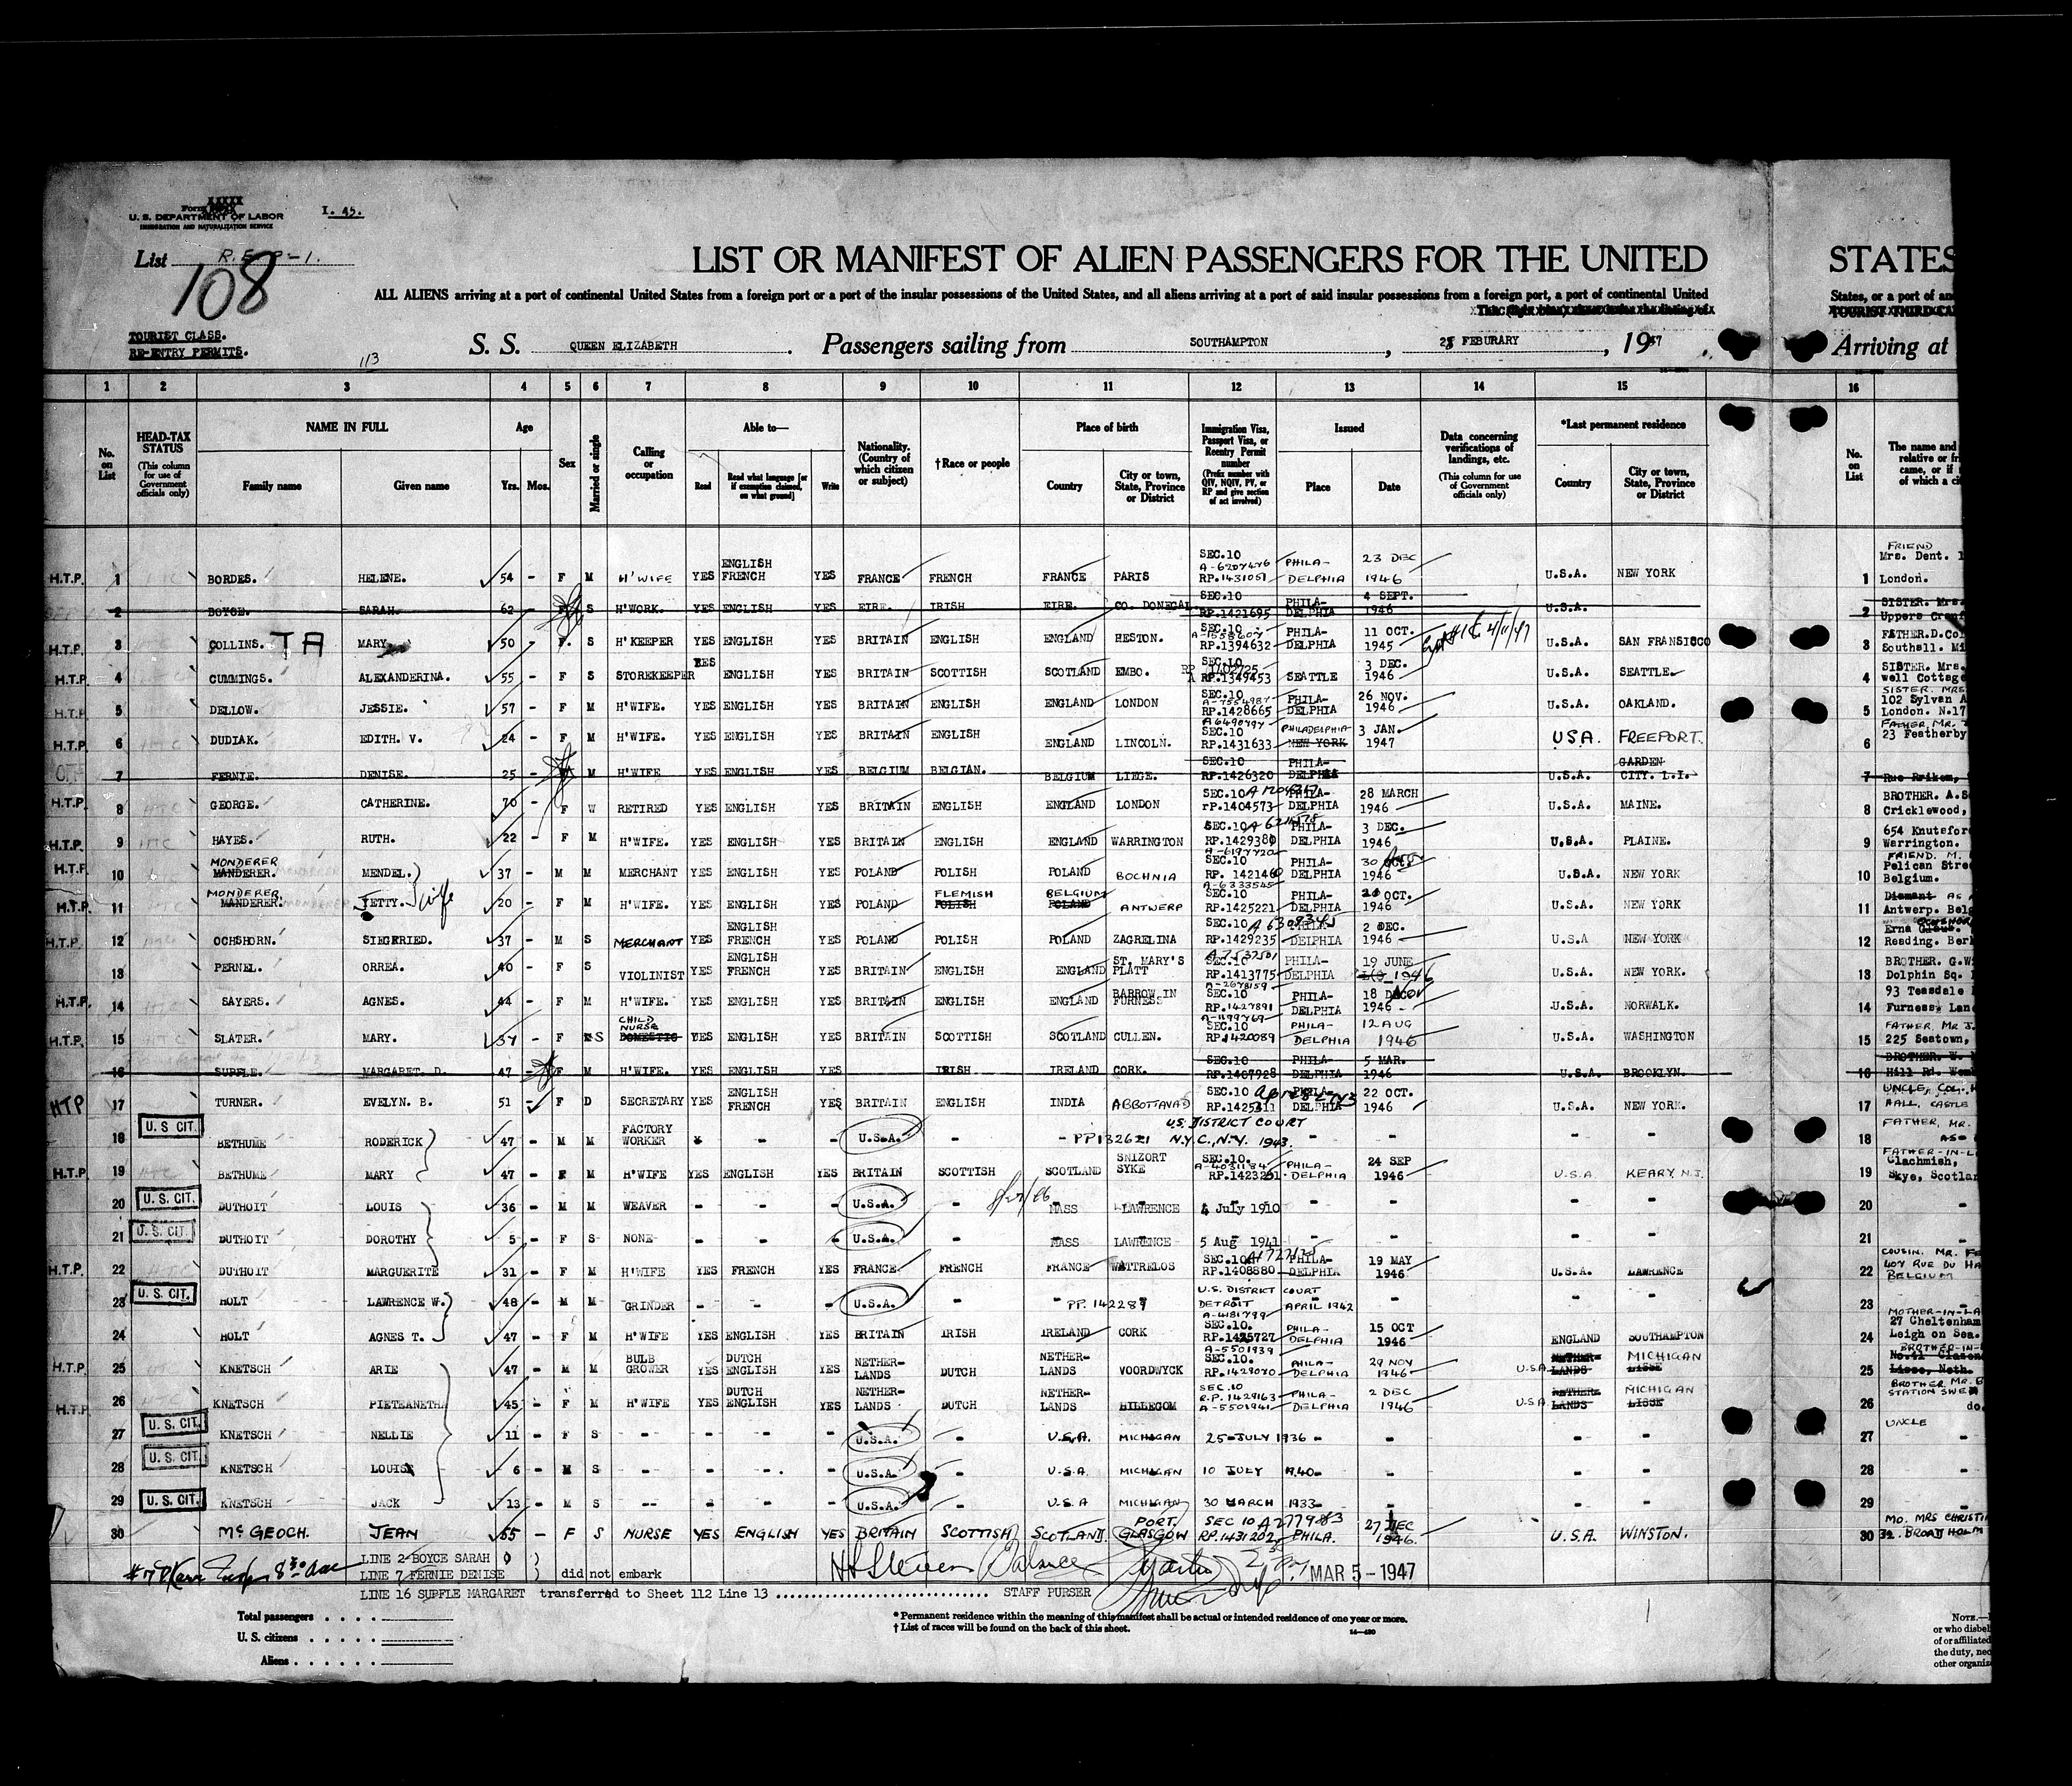 Form XXXXX
U. S. DEPARTMENT OF LABOR
IMMIGRATION AND NATURALIZATION SERVICE
I. 45.
List R.E.P-1.
108
LIST OR MANIFEST OF ALIEN PASSENGERS FOR THE UNITED STATES
ALL ALIENS arriving at a port of continental United States from a foreign port or a port of the insular possessions of the United States, and all aliens arriving at a port of said insular possessions from a foreign port, a port of continental United States, or a port of
TOURIST CLASS.
RE-ENTRY PERMITS.
113
S. S. QUEEN ELIZABETH. Passengers sailing from SOUTHAMPTON, 28 FEBURARY, 1947 Arriving at
1 2 3 4 5 6 7 8 9 10 11 12 13 14 15 16
No. on List
HEAD-TAX STATUS (This column for use of Government officials only)
NAME IN FULL
Family name Given name
Age
Yrs. Mos.
Sex
Married or single
Calling or occupation
Able to—
Read Read what language [or if exemption claimed, on what ground] Write
Nationality. (Country of which citizen or subject)
†Race or people
Place of birth
Country City or town, State, Province or District
Immigration Visa, Passport Visa, or Reentry Permit number (Prefix number with QIV, NQIV, PV, or RP and give section of act involved)
Issued
Place Date
Data concerning verifications of landings, etc. (This column for use of Government officials only)
*Last permanent residence
Country City or town, State, Province or District
No. on List
The name and
H.T.P. 1 BORDES. HELENE. 54 - F M H'WIFE YES ENGLISH FRENCH YES FRANCE FRENCH FRANCE PARIS SEC.10 RP.1431051 PHILADELPHIA 23 DEC 1946 U.S.A. NEW YORK 1 FRIEND Mrs. Dent. London.
2 BOYCE. SARAH. 62 - F S H'WORK. YES ENGLISH YES EIRE. IRISH EIRE. CO. DONEGAL SEC.10 RP.1421695 PHILADELPHIA 4 SEPT. 1946 U.S.A. 2 SISTER. Mrs.
H.T.P. 3 COLLINS. TA MARY 50 - F. S H'KEEPER YES ENGLISH YES BRITAIN ENGLISH ENGLAND HESTON. SEC.10 RP.1394632 PHILADELPHIA 11 OCT. 1945 U.S.A. SAN FRANSISCO 3 FATHER. Southall.
H.T.P. 4 CUMMINGS. ALEXANDERINA. 55 - F S STOREKEEPER YES ENGLISH YES BRITAIN SCOTTISH SCOTLAND EMBO. SEC.10 RP.1349453 SEATTLE 3 DEC. 1946 U.S.A. SEATTLE. 4 SISTER. Mrs. well Cottage
H.T.P. 5 DELLOW. JESSIE. 57 - F M H'WIFE. YES ENGLISH YES BRITAIN ENGLISH ENGLAND LONDON SEC.10 RP.1428665 PHILADELPHIA 26 NOV. 1946 U.S.A. OAKLAND. 5 SISTER. MRS 102 Sylvan London. N.17
H.T.P. 6 DUDIAK. EDITH. V. 24 - F M H'WIFE. YES ENGLISH YES BRITAIN ENGLISH ENGLAND LINCOLN. A6490797 SEC.10 RP.1431633 PHILADELPHIA NEW YORK 3 JAN. 1947 USA. FREEPORT. 6 FATHER, MR. 23 Featherby
7 FERNIE. DENISE. 25 - M H'WIFE YES ENGLISH YES BELGIUM BELGIAN. BELGIUM LIEGE. SEC.10 RP.1426320 PHILADELPHIA U.S.A. GARDEN CITY. L.I. 7
H.T.P. 8 GEORGE. CATHERINE. 70 - F W RETIRED YES ENGLISH YES BRITAIN ENGLISH ENGLAND LONDON SEC.10 rP.1404573 PHILADELPHIA 28 MARCH 1946 U.S.A. MAINE. 8 BROTHER. Cricklewood,
H.T.P. 9 HAYES. RUTH. 22 - F M H'WIFE. YES ENGLISH YES BRITAIN ENGLISH ENGLAND WARRINGTON SEC.10 RP.1429380 PHILADELPHIA 3 DEC. 1946 U.S.A. PLAINE. 9 654 Knutsford Warrington.
H.T.P. 10 MONDERER MANDERER. MENDEL. 37 - M M MERCHANT YES ENGLISH YES POLAND POLISH POLAND BOCHNIA SEC.10 RP. 1421460 PHILADELPHIA 30 1946 U.S.A. NEW YORK 10 FRIEND. M. Pelican Belgium.
H.T.P. 11 MONDERER MANDERER. JETTY. wife 20 - F M H'WIFE. YES ENGLISH YES POLAND FLEMISH POLISH BELGIUM POLAND ANTWERP A-6333545 SEC.10 RP.1425221 PHILADELPHIA OCT. 1946 U.S.A. NEW YORK 11 Antwerp.
H.T.P. 12 OCHSHORN. SIEGFRIED. 37 - M S MERCHANT YES ENGLISH FRENCH YES POLAND POLISH POLAND ZAGRELINA SEC.10 RP.1429235 PHILADELPHIA 2 DEC. 1946 U.S.A NEW YORK 12 Erna Reading.
13 PERNEL. ORREA. 40 - F S VIOLINIST YES ENGLISH FRENCH YES BRITAIN ENGLISH ENGLAND ST. MARY'S PLATT SEC.10 RP.1413775 PHILADELPHIA 19 JUNE 1946 U.S.A. NEW YORK. 13 BROTHER. Dolphin Sq.
H.T.P. 14 SAYERS. AGNES. 44 - F M H'WIFE. YES ENGLISH YES BRITAIN ENGLISH ENGLAND BARROW IN FURNESS SEC.10 RP.1427891 PHILADELPHIA 18 1946 U.S.A. NORWALK. 14 93 Teasdale Furness,
H.T.P. 15 SLATER. MARY. 37 - F S CHILD NURSE DOMESTIC YES ENGLISH YES BRITAIN SCOTTISH SCOTLAND CULLEN. A-1199769 SEC.10 RP.1420089 PHILADELPHIA 12 AUG 1946 U.S.A. WASHINGTON 15 FATHER. MR J. 225 Seatown,
16 SUPFLE. MARGARET. D. 47 - F M H'WIFE. YES ENGLISH YES IRISH IRELAND CORK. SEC.10 RP.1407928 PHILADELPHIA 5 MAR. 1946 U.S.A. BROOKLYN. 16 BROTHER. Hill Rd.
HTP 17 TURNER. EVELYN. B. 51 - F D SECRETARY YES ENGLISH FRENCH YES BRITAIN ENGLISH INDIA ABBOTTAVAD SEC.10 RP.1425311 PHILADELPHIA 22 OCT. 1946 U.S.A. NEW YORK. 17 UNCLE, COL. HALL, CASTLE
U.S CIT. 18 BETHUME RODERICK 47 - M M FACTORY WORKER - - - U.S.A. - - PP132621 U.S. DISTRICT COURT N.Y.C., N.Y. 1943. - - - 18 FATHER, MR.
H.T.P. 19 BETHUME MARY 47 - F M H'WIFE YES ENGLISH YES BRITAIN SCOTTISH SCOTLAND SNIZORT SYKE SEC.10. RP.1423251 PHILADELPHIA 24 SEP 1946 U.S.A KEARY N.J. 19 FATHER-IN-L Clachmish, Skye,
U. S. CIT. 20 DUTHOIT LOUIS 36 - M M WEAVER - - - U.S.A. - MASS LAWRENCE 4 July 1910 - - - - 20 -
U. S. CIT. 21 DUTHOIT DOROTHY 5 - F S NONE - - - U.S.A. - MASS LAWRENCE 5 Aug 1941 - - - - 21 -
H.T.P. 22 DUTHOIT MARGUERITE 31 - F M H'WIFE YES FRENCH YES FRANCE FRENCH FRANCE WATTRELOS SEC.10 RP.1408880 PHILADELPHIA 19 MAY 1946 U.S.A. LAWRENCE 22 COUSIN. MR. 407 RUE DU BELGIUM
U. S. CIT. 23 HOLT LAWRENCE W. 48 - M M GRINDER - - - U.S.A. - PP. 142289 U.S. DISTRICT COURT DETROIT APRIL 1942 - - - 23 -
24 HOLT AGNES T. 47 - F M H'WIFE YES ENGLISH YES BRITAIN IRISH IRELAND CORK A-4181799 SEC.10. RP.1425727 PHILADELPHIA 15 OCT 1946 ENGLAND SOUTHAMPTON 24 MOTHER-IN-LA 27 Cheltenham Leigh on Sea.
H.T.P. 25 KNETSCH ARIE 47 - M M BULB GROWER YES DUTCH ENGLISH YES NETHER- LANDS DUTCH NETHER- LANDS VOORDWYCK A-5501939 SEC.10. RP.1429070 PHILADELPHIA 29 NOV 1946 U.S.A. NETHER- LANDS MICHIGAN LISSE 25 BROTHER-IN- Lisse, Neth.
H.T.P. 26 KNETSCH PIETEANETH. 45 - F M H'WIFE YES DUTCH ENGLISH YES NETHER- LANDS DUTCH NETHER- LANDS HILLEGOM SEC.10 R.P.1429163 A-5501941 PHILADELPHIA 2 DEC 1946 U.S.A. NETHER- LANDS MICHIGAN LISSE 26 BROTHER MR. STATION do.
U. S. CIT. 27 KNETSCH NELLIE 11 - F S - - - - U.S.A. - U.S.A. MICHIGAN 25-JULY 1936 - - - - 27 UNCLE -
U. S. CIT. 28 KNETSCH LOUIS 6 - M S - - - - U.S.A. - U.S.A. MICHIGAN 10 JULY 1940- - - - - 28 -
U. S. CIT. 29 KNETSCH JACK 13 - M S -- - - - U.S.A. - U.S.A MICHIGAN 30 MARCH 1933- - - - - 29 -
30 McGEOCH. JEAN 55 - F S NURSE YES ENGLISH YES BRITAIN SCOTTISH SCOTLAND. PORT. GLASGOW SEC 10 RP.1431202 PHILA. 27 DEC 1946. U.S.A. WINSTON. 30 MO. MRS 32. BROAD HOLM
LINE 2 BOYCE SARAH
LINE 7 FERNIE DENISE } did not embark
LINE 16 SUPFLE MARGARET transferred to Sheet 112 Line 13 STAFF PURSER
MAR 5-1947
Total passengers
U. S. citizens
Aliens
* Permanent residence within the meaning of this manifest shall be actual or intended residence of one year or more.
† List of races will be found on the back of this sheet.
NOTE.—
or who disbel
of or affiliated
the duty, nec
other organiz